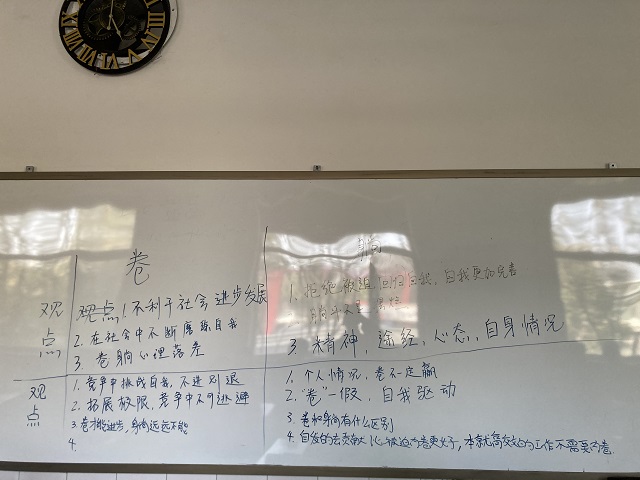 卷
躺
观点
观点1.不利于社会进步发展
2.在社会中不断磨练自我
3.卷躺心理落差
1.拒绝被迫,回归自我,自我更加完善
2.
3.精神,途经,心态,自身情况
观点
1.竞争中挑战自我,不进则退
2.拓展极限,竞争中不可逃避
3.卷才能进步,躺平远远不能
4.
1.个人情况,卷不一定赢
2."卷"一假,自我驱动
3.卷和躺有什么区别
4.自发的去贡献大
被迫内卷更少了,本就简单的工作不需要内卷